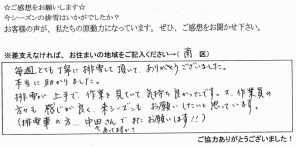 ☆ご感想をお願いします☆
今シーズンの排雪はいかがでしたか?
お客様の声が、私たちの原動力になっています。ぜひ、ご感想をお聞かせ下さい。
※差支えなければ、お住まいの地域をご記入ください→( 南 区)
毎週とても丁寧に排雪して頂いて、ありがとうございました。
本当に助かりました。
排雪が上手で、作業を見ていて気持ち良かったです。又、作業員の
方々も感じが良く、来シーズンもお願いしたいと思っています。
(排雪車の方…中田さんでまたお願いします!!)
あってますか?
ご協力ありがとうございました!